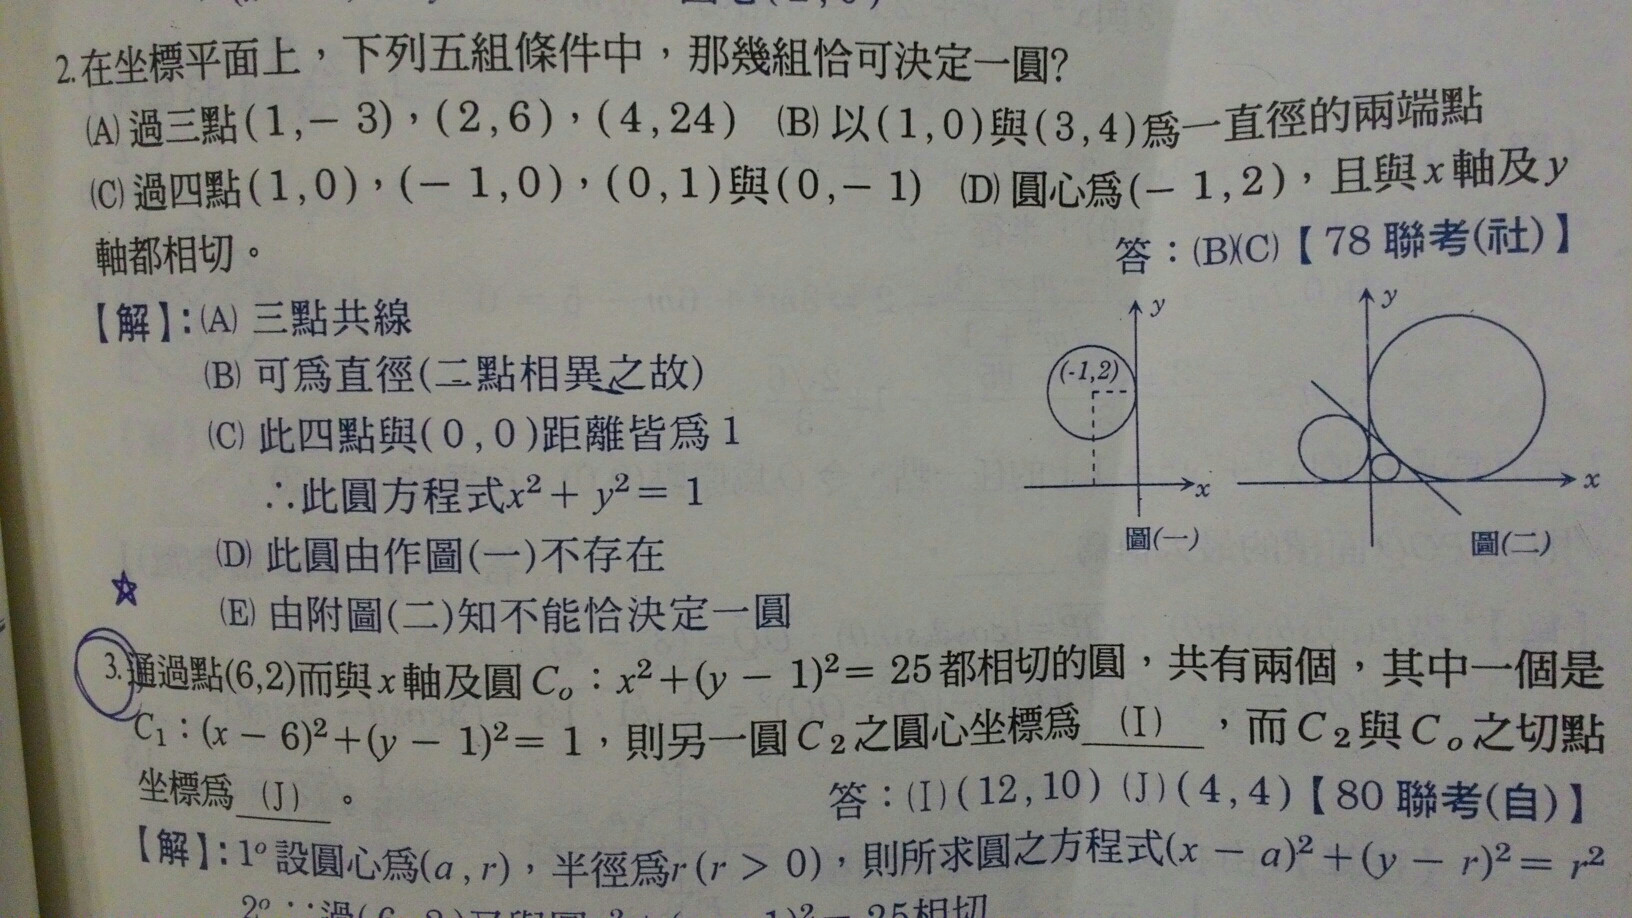 2.在坐標平面上，下列五組條件中，那幾組恰可決定一圓?
(A)過三點(1,－3)，(2,6)，(4,24) (B)以(1,0)與(3,4)爲一直徑的兩端點
(C)過四點(1,0)，(－1,0)，(0,1)與(0,－1) (D)圓心爲(－1,2)，且與x軸及y
軸都相切。
答：(B)(C)【78聯考(社)】
【解】:(A)三點共線
(B)可爲直徑(二點相異之故)
(C)此四點與(0,0)距離皆爲1
∴此圓方程式x²+y²=1
(D)此圓由作圖(一)不存在
(E)由附圖(二)知不能恰決定一圓
y
(-1,2)
x
圖(一)
y
x
圖(二)
3.通過點(6,2)而與x軸及圓C₀：x²+(y－1)²=25都相切的圓，共有兩個，其中一個是
C₁：(x－6)²+(y－1)²=1，則另一圓C₂之圓心坐標爲 (I) ，而C₂與C₀之切點
坐標爲 (J) 。
答：(I)(12,10) (J)(4,4)【80聯考(自)】
【解】:1°設圓心爲(a,r)，半徑爲r(r>0)，則所求圓之方程式(x－a)²+(y－r)²=r²